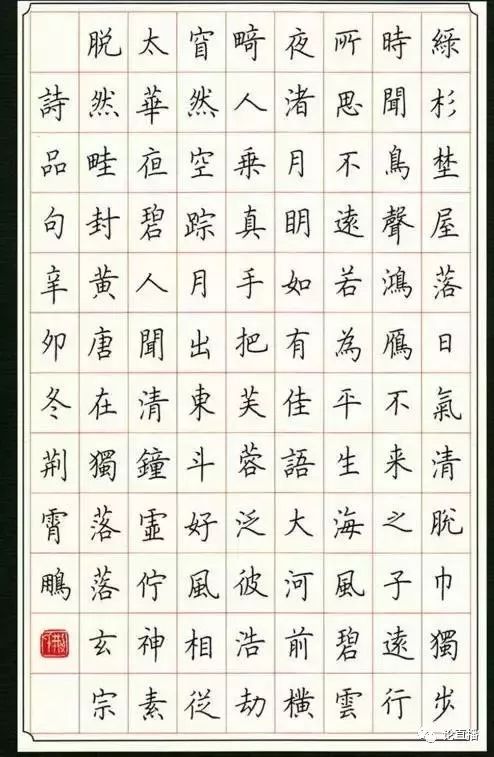 綠杉埜屋落日氣清脫巾獨步
時聞鳥聲鴻鴈不来之子遠行
所思不遠若為平生海風碧雲
夜渚月眀如有佳語大河前橫
畸人乗真手把芙蓉泛彼浩劫
窅然空踪月出東斗好風相從
太華夜碧人聞清鐘虛佇神素
脱然畦封黃唐在獨落落玄宗
詩品句辛卯冬荆霄鵬
论直播